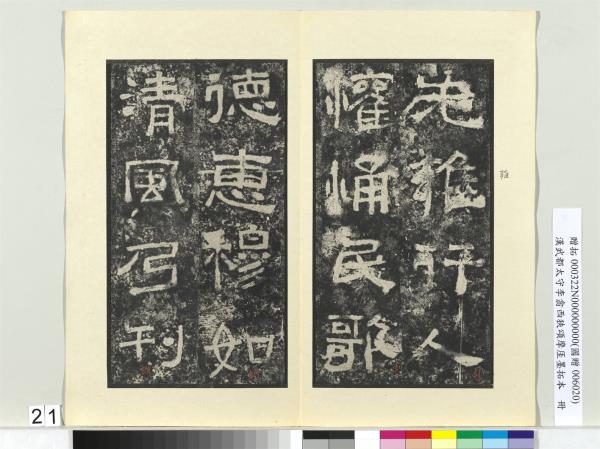 无雍行人
懽悀民歌
德惠穆如
清風乃刊
贈拓 000322N000000000(國贈 006020)
漢武都太守李翕西狹頌摩厓墨拓本 冊
21